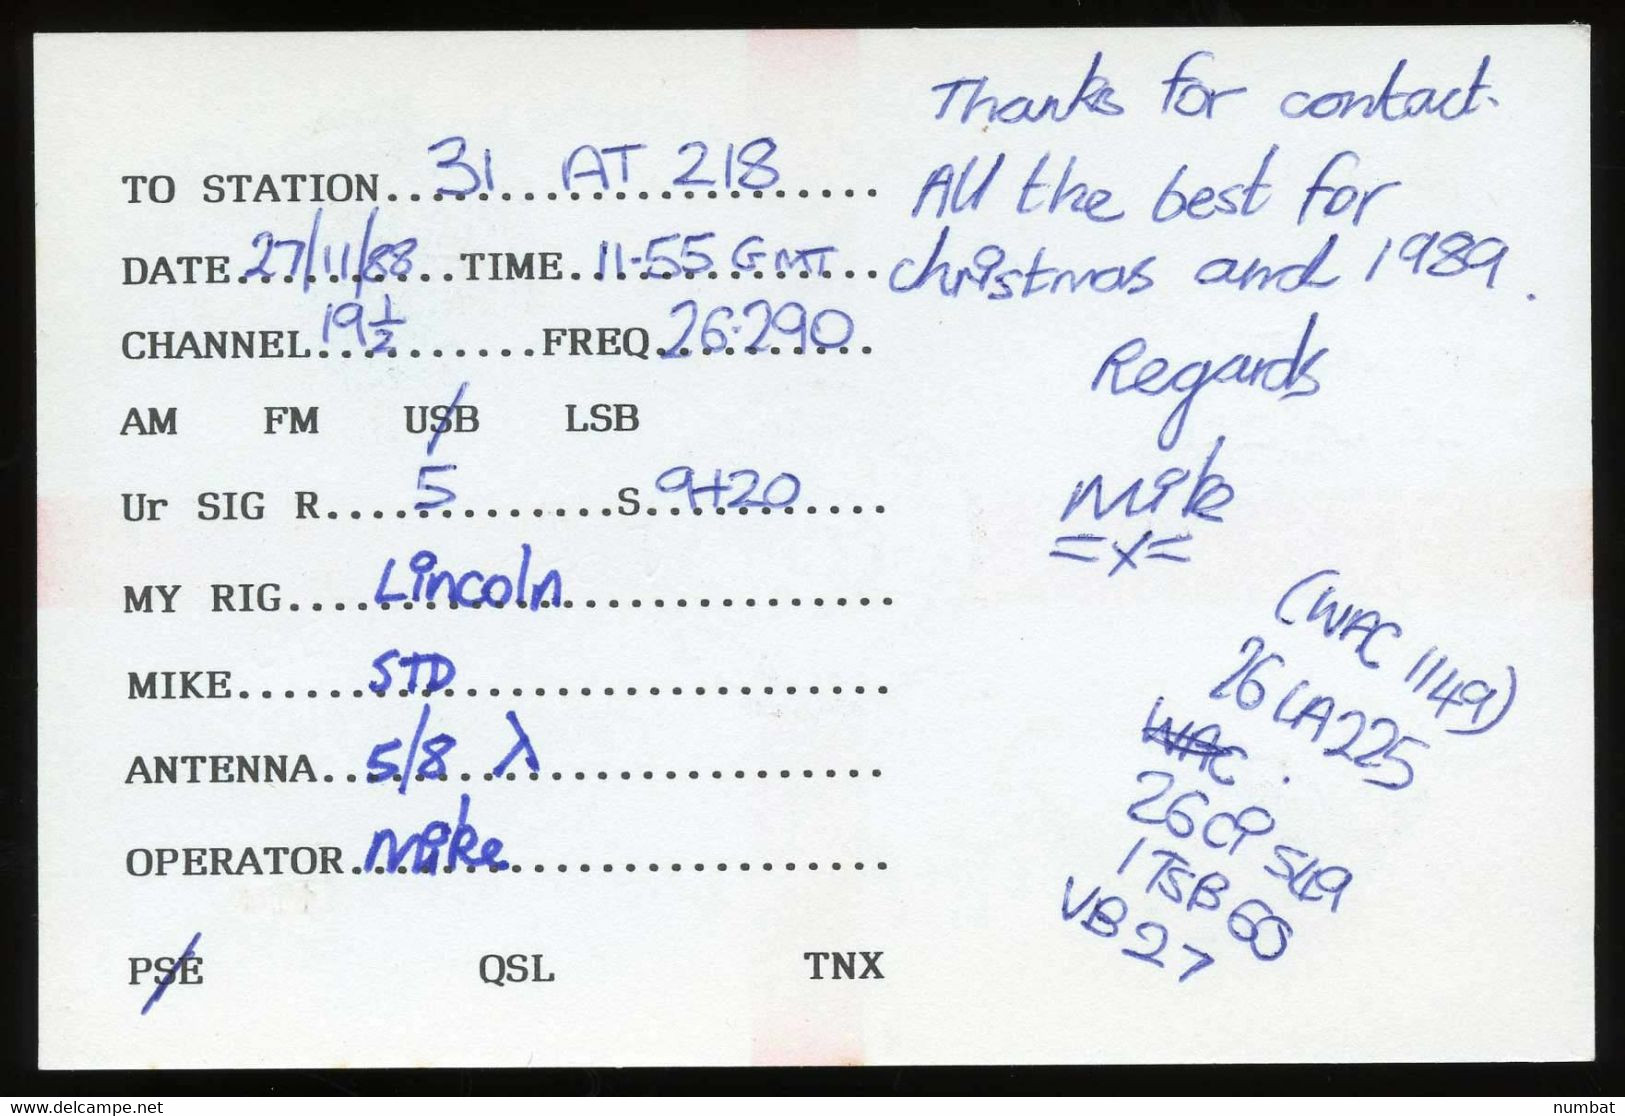 TO STATION...31 AT 218
DATE 27/11/88 TIME 11.55 GMT
CHANNEL 19 1/2 FREQ 26.290
AM FM USB LSB
Ur SIG R 5 S 9+20
MY RIG Lincoln
MIKE STD
ANTENNA 5/8 λ
OPERATOR Mike
PSE QSL TNX
Thanks for contact.
All the best for
christmas and 1989.
Regards
Mike
=x=
(WAC 1149)
26 LA 225
WAC.
26 CI 549
1 TSB 60
VB 27
www.delcampe.net
numbat